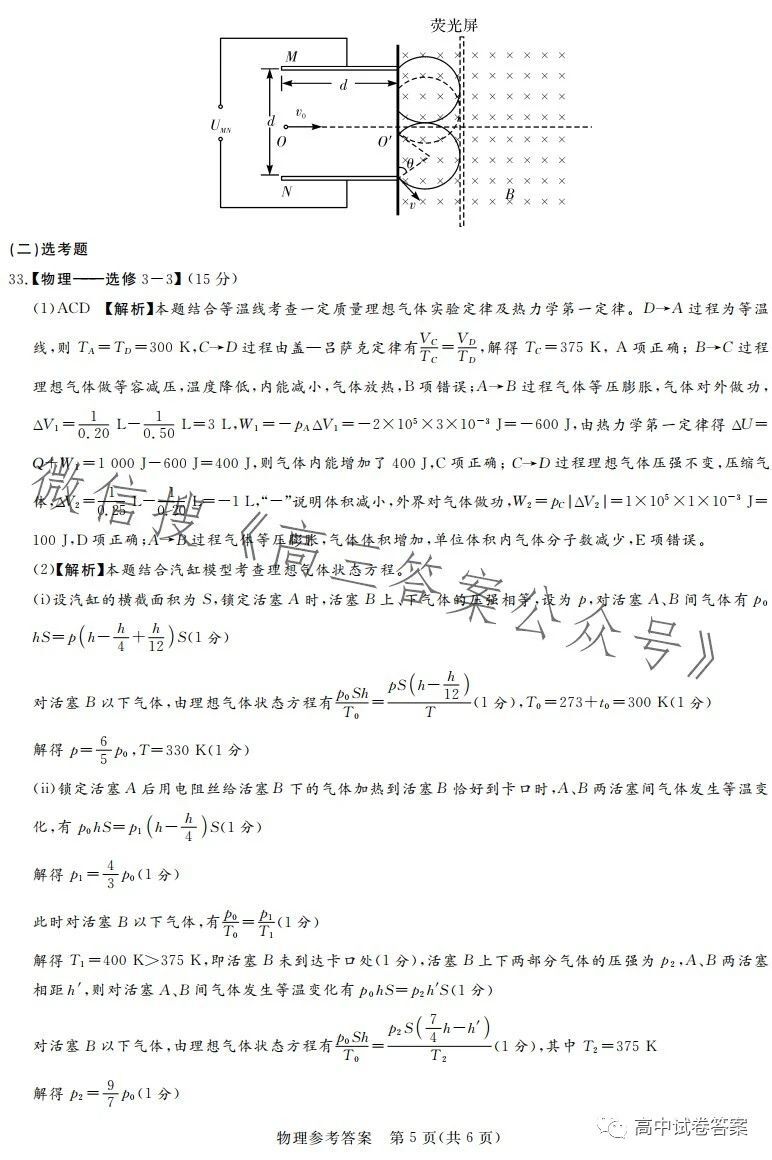 荧光屏
M
d
U_MN
d
v₀
O
O′
θ
N
v
B
(二)选考题
33.【物理——选修3-3】(15分)
(1)ACD 【解析】本题结合等温线考查一定质量理想气体实验定律及热力学第一定律。D→A过程为等温
线,则 T_A=T_D=300 K,C→D过程由盖—吕萨克定律有V_C/T_C=V_D/T_D,解得 T_C=375 K, A项正确; B→C过程
理想气体做等容减压,温度降低,内能减小,气体放热,B项错误;A→B过程气体等压膨胀,气体对外做功,
ΔV₁=1/0.20 L-1/0.50 L=3 L,W₁=-p_AΔV₁=-2×10⁵×3×10⁻³ J=-600 J,由热力学第一定律得 ΔU=
Q+W₁=1 000 J-600 J=400 J,则气体内能增加了 400 J,C项正确; C→D过程理想气体压强不变,压缩气
体,ΔV₂=1/0.25 L-1/0.20 L=-1 L,“-”说明体积减小,外界对气体做功,W₂=p_C|ΔV₂|=1×10⁵×1×10⁻³ J=
100 J,D项正确;A→B过程气体等压膨胀,气体体积增加,单位体积内气体分子数减少,E项错误。
(2)【解析】本题结合汽缸模型考查理想气体状态方程。
(i)设汽缸的横截面积为 S,锁定活塞 A 时,活塞 B 上、下气体的压强相等,设为 p,对活塞 A、B 间气体有 p₀
hS=p(h-h/4+h/12)S(1分)
对活塞 B 以下气体,由理想气体状态方程有p₀Sh/T₀=pS(h-h/12)/T(1分),T₀=273+t₀=300 K(1分)
解得 p=6/5p₀,T=330 K(1分)
(ii)锁定活塞 A 后用电阻丝给活塞 B 下的气体加热到活塞 B 恰好到卡口时,A、B 两活塞间气体发生等温变
化,有 p₀hS=p₁(h-h/4)S(1分)
解得 p₁=4/3p₀(1分)
此时对活塞 B 以下气体,有p₀/T₀=p₁/T₁(1分)
解得 T₁=400 K>375 K,即活塞 B 未到达卡口处(1分),活塞 B 上下两部分气体的压强为 p₂,A、B 两活塞
相距 h′,则对活塞 A、B 间气体发生等温变化有 p₀hS=p₂h′S(1分)
对活塞 B 以下气体,由理想气体状态方程有p₀Sh/T₀=p₂S(7/4h-h′)/T₂(1分),其中 T₂=375 K
解得 p₂=9/7p₀(1分)
微信搜《高三答案公众号》
物理参考答案 第5页(共6页)
高中试卷答案